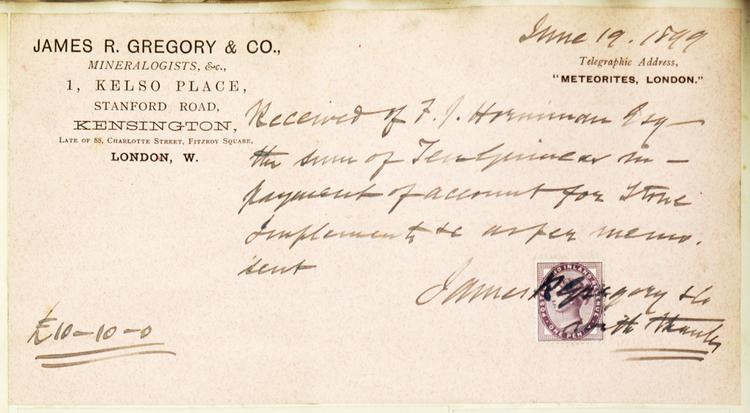 JAMES R. GREGORY & CO.,
MINERALOGISTS, &c.,
1, KELSO PLACE,
STANFORD ROAD,
KENSINGTON,
LATE OF 88, CHARLOTTE STREET, FITZROY SQUARE,
LONDON, W.
June 19. 1899
Telegraphic Address,
"METEORITES, LONDON."
Received of F. J. Horniman Esq
the sum of Ten Guineas in
payment of account for Stone
Implements &c as per memo.
sent
James R Gregory & Co
with thanks
£10-10-0
POSTAGE AND INLAND REVENUE
ONE PENNY